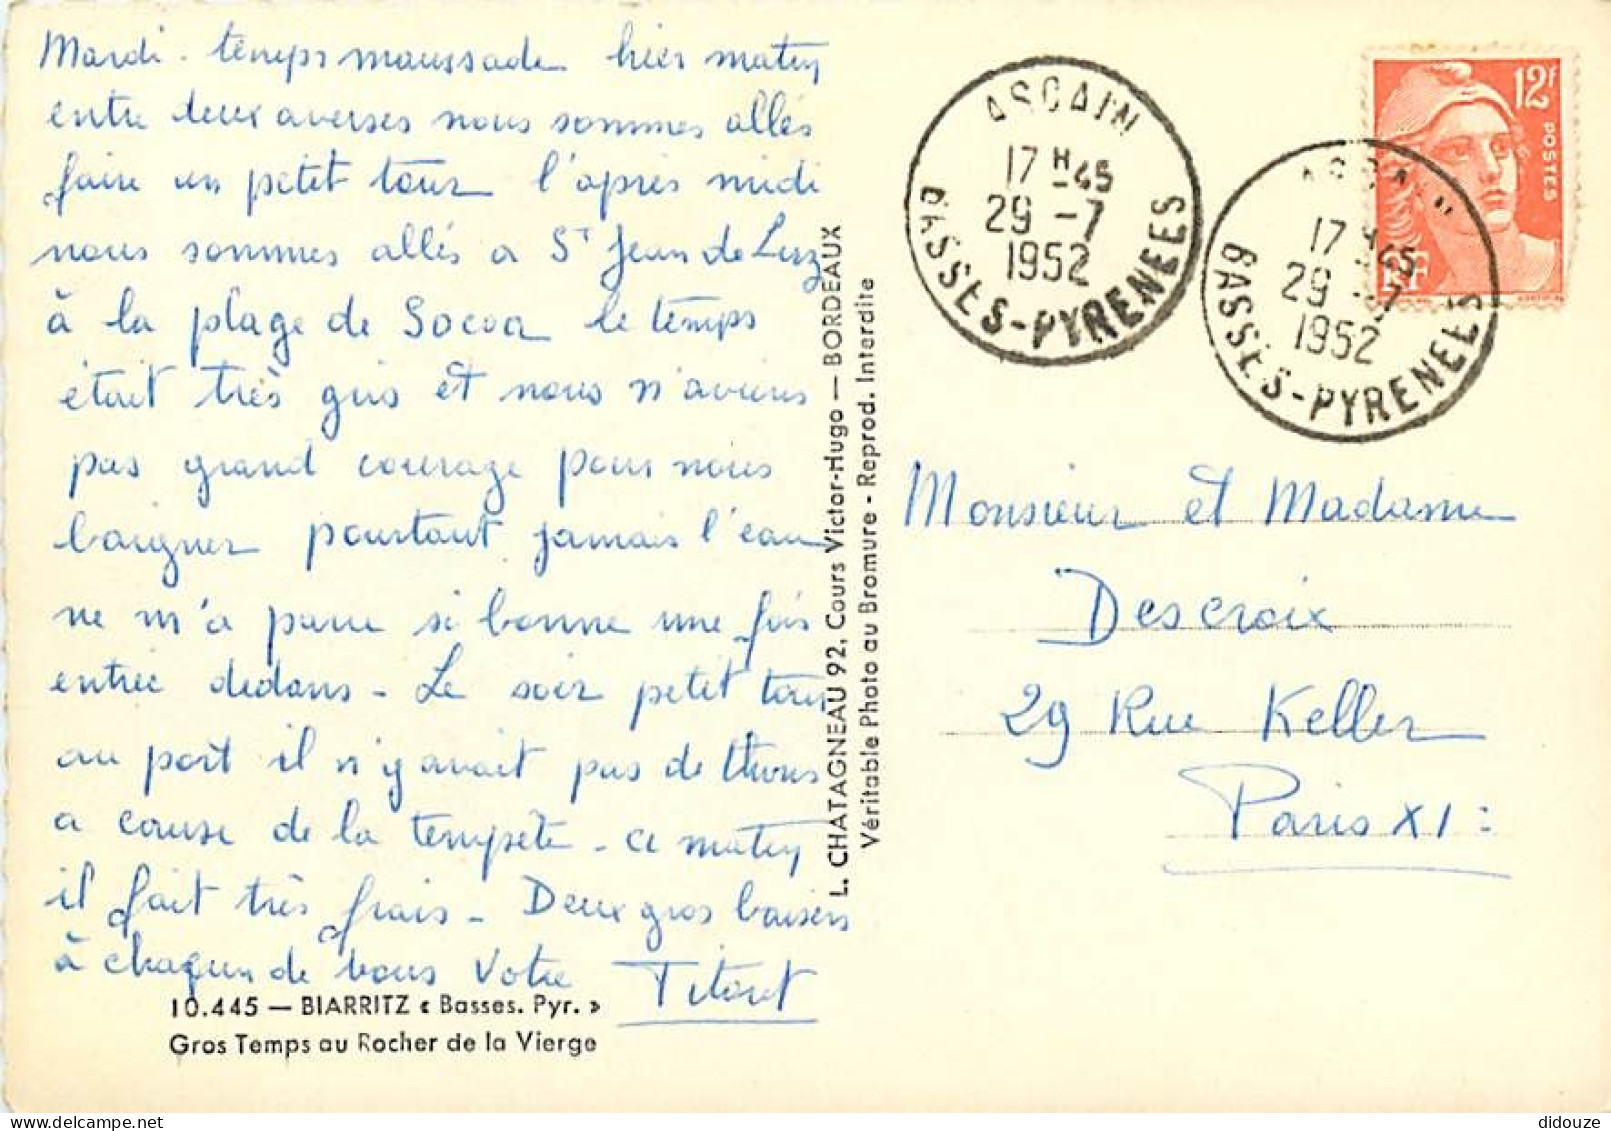 Mardi. temps maussade hier matin
entre deux averses nous sommes allés
faire un petit tour l'après midi
nous sommes allés a St Jean de Luz
à la plage de Socoa le temps
était très gris et nous n'avions
pas grand courage pour nous
baigner pourtant jamais l'eau
ne m'a parue si bonne une fois
entrée dedans - Le soir petit tour
au port il n'y avait pas de thons
a cause de la tempête - ce matin
il fait très frais - Deux gros baisers
à chaqun de vous Votre Titoret
10.445 — BIARRITZ « Basses. Pyr. »
Gros Temps au Rocher de la Vierge
L. CHATAGNEAU 92, Cours Victor-Hugo — BORDEAUX
Véritable Photo au Bromure - Reprod. Interdite
ASCAIN
17 H 45
29 - 7
1952
BASSES-PYRENEES
ASCAIN
17 H 45
29 - 7
1952
BASSES-PYRENEES
12F
POSTES
RF
Monsieur et Madame
Descroix
29 Rue Keller
Paris XI :
didouze